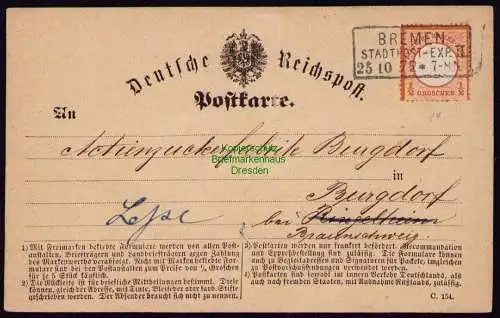 BREMEN
STADTPOST-EXP. II
25 10 72 * 7-8N
1/2 GROSCHEN
Deutsche Reichspost.
Postkarte.
An
Actienzuckerfabrik Burgdorf
Kopierschutz
Briefmarkenhaus
Dresden
in
Burgdorf
bei Ringelheim
Braunschweig.
1) Mit Freimarken beklebte Formulare werden von allen Post-
anstalten, Briefträgern und Landbriefträgern gegen Zahlung des
Markenwerths verabfolgt. Nicht beklebte Formulare können
bei den Postanstalten zum Preise von ¼ Groschen für
je 5 Stück
2) Die Rückseite ist für briefliche Mittheilungen bestimmt. Diese
können, gleich der Adresse, mit Tinte, Bleifeder oder farbigen Stifte
geschrieben werden. Der Absender braucht sich nicht zu nennen.
3) Postkarten werden nur frankirt befördert. Recommandation
und Expressbestellung sind zulässig. Die Formulare können
auch zu Begleitadressen und Signaturen zu Postpacketen, sowie
zu benutzt werden.
4) Postkarten sind zulässig im innern Verkehr Deutschlands, als
auch nach fremden Staaten, mit Ausnahme Russlands, zulässig.
C. 154.